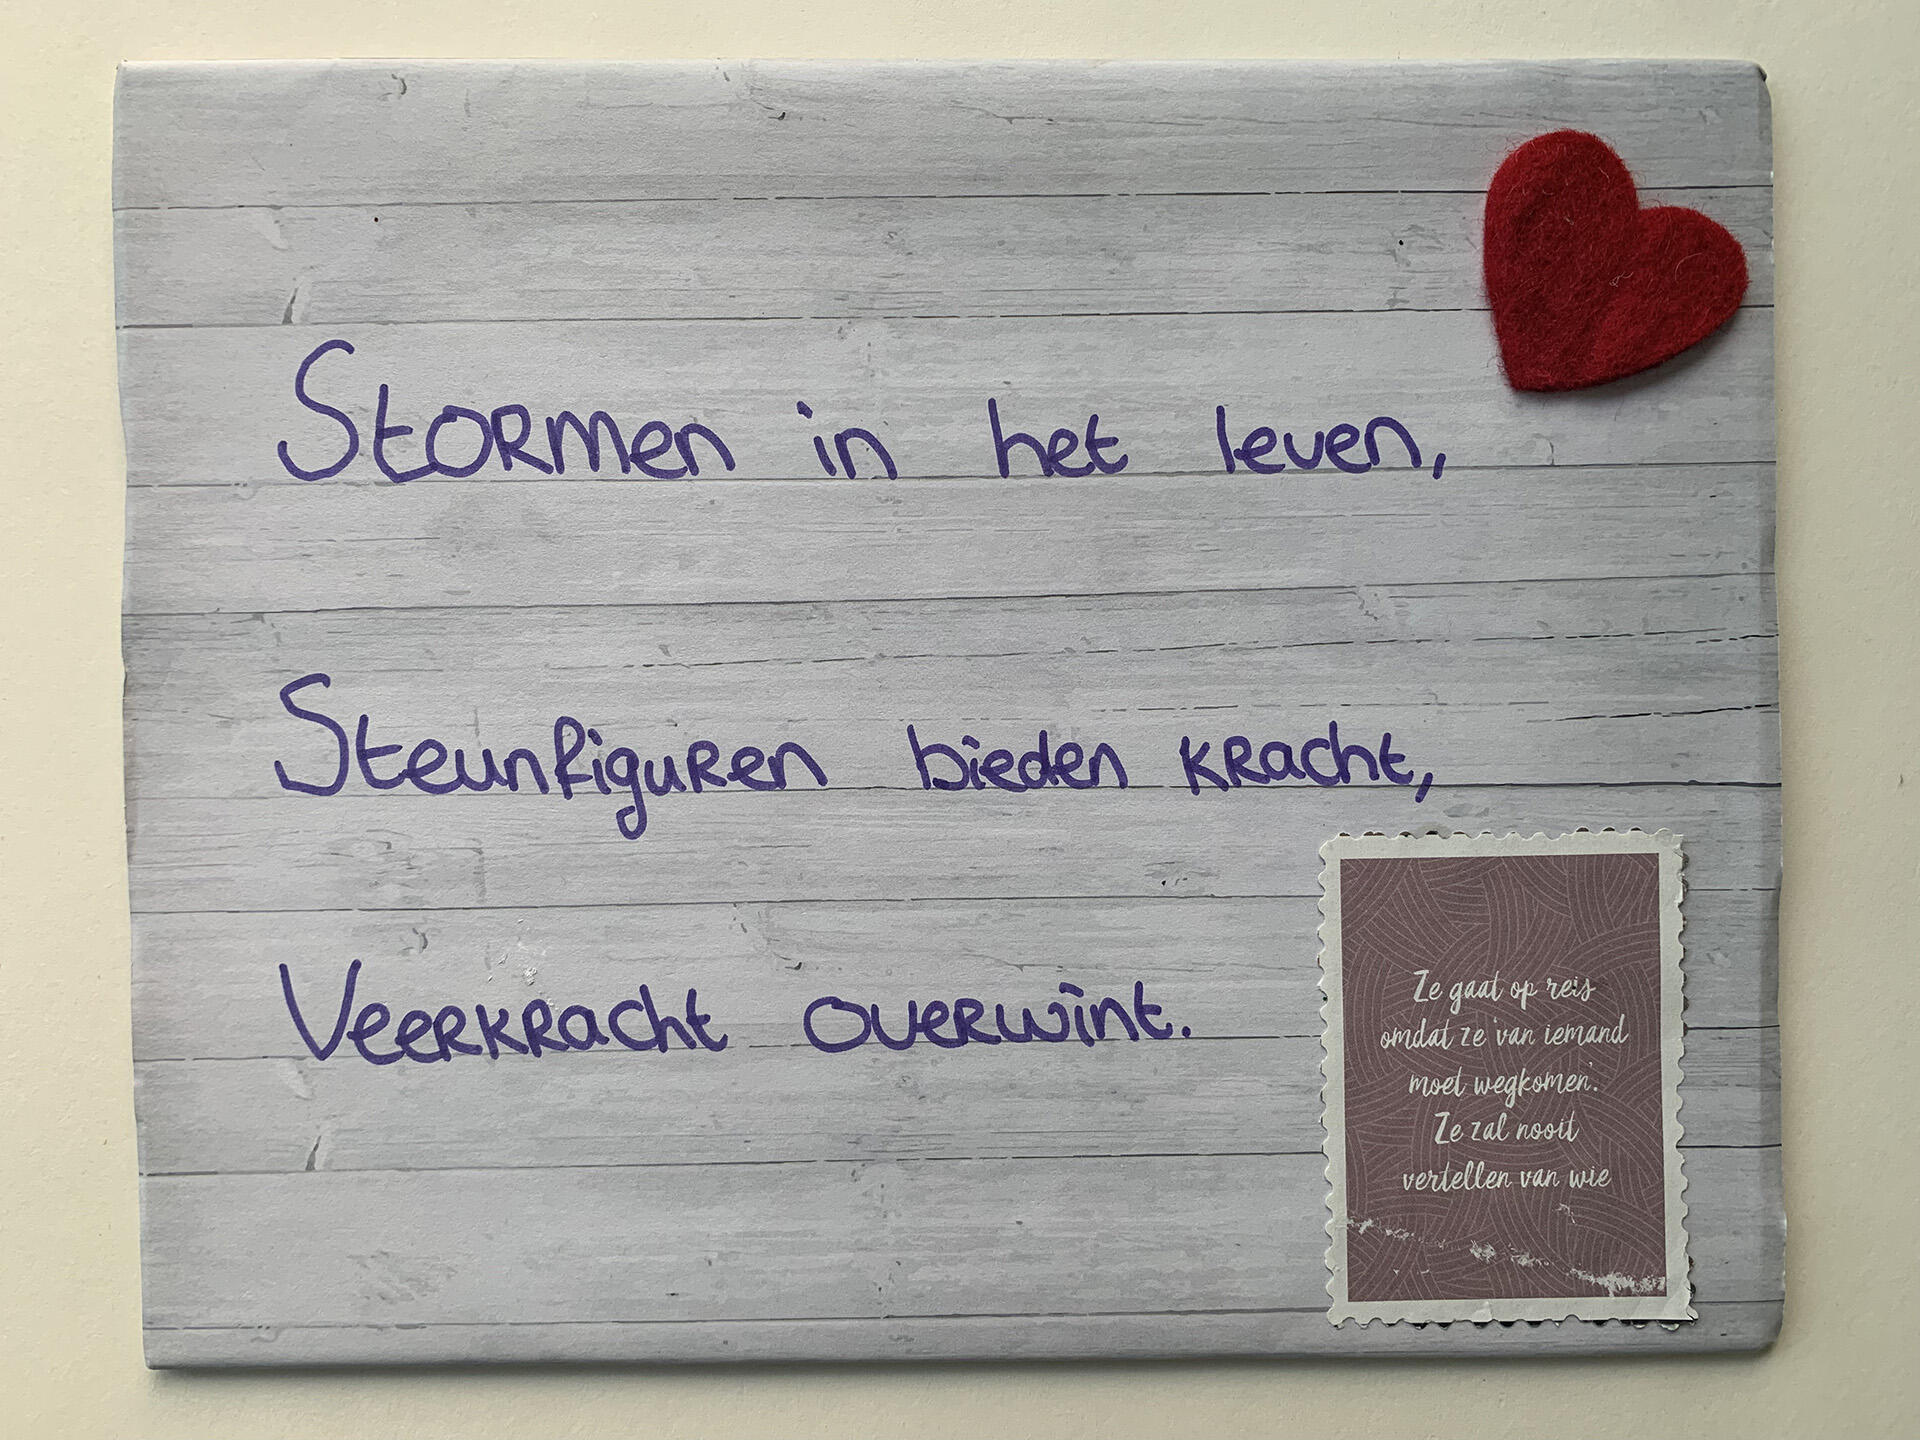 Stormen in het leven,
Steunfiguren bieden kracht,
Veerkracht overwint.
Ze gaat op reis
omdat ze 'van iemand
moet wegkomen'.
Ze zal nooit
vertellen van wie